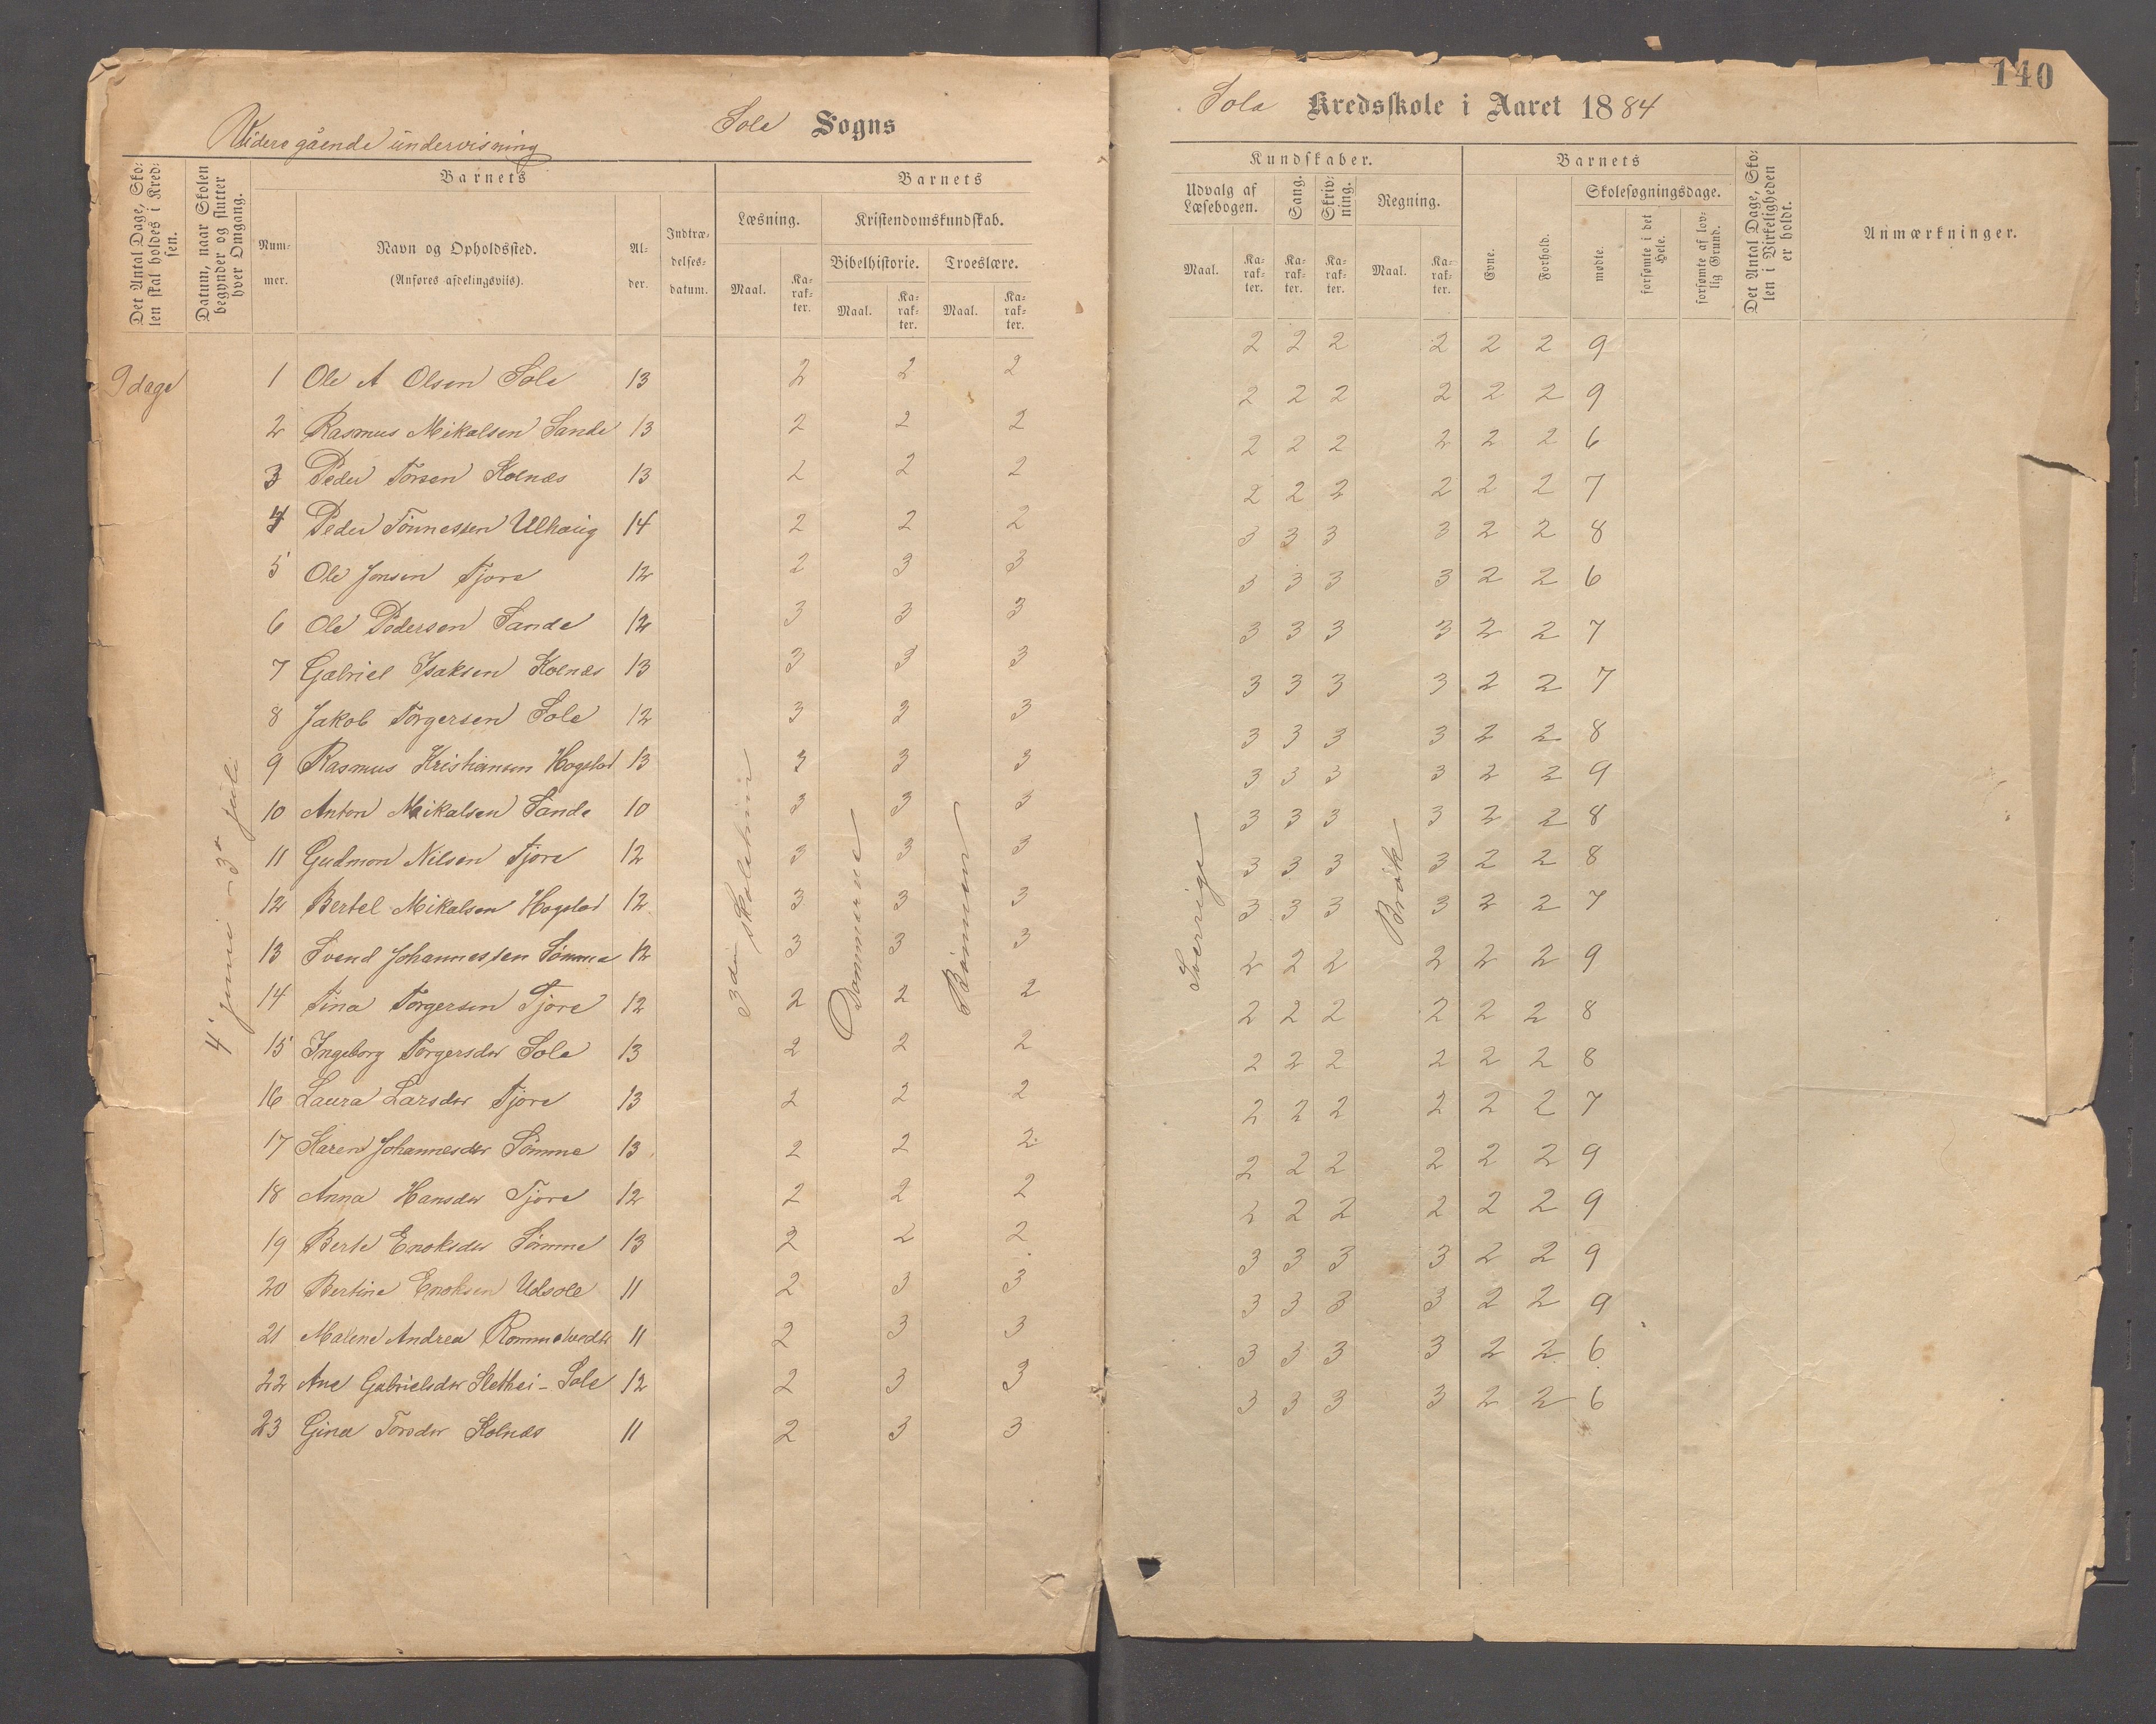 140
Videregående undervisning
Sole Sogns
Sola Kredsskole i Aaret 1884
Det Antal Dage, Skolen skal holdes i Kredsen.
Datum, naar Skolen begynder og slutter hver Omgang.
Barnets
Nummer.
Navn og Opholdssted.
(Anføres afdelingsviis).
Alder.
Indtrædelsesdatum.
Barnets
Læsning.
Maal.
Karakter.
Kristendomskundskab.
Bibelhistorie.
Maal.
Karakter.
Troeslære.
Maal.
Karakter.
Kundskaber.
Udvalg af Læsebogen.
Maal.
Karakter.
Sang.
Karakter.
Skrivning.
Karakter.
Regning.
Maal.
Karakter.
Barnets
Evne.
Forhold.
Skolesøgningsdage.
mødte.
forsømte i det Hele.
forsømte af lovlig Grund.
Det Antal Dage, Skolen i Virkeligheden er holdt.
Anmærkninger.
9 dage
4' juni – 3' juli
3die skoletrin
Dommerne
Bönnen
Sverrige
Brök
1 Ole A Olsen Sole 13 2 2 2 2 2 2 2 2 2 9
2 Rasmus Mikalsen Sande 13 2 2 2 2 2 2 2 2 2 9
3 Peder Torsen Kolnes 13 2 2 2 2 2 2 2 2 2 6
4 Peder Tönnessen Ulhoug 14 2 2 2 2 2 2 2 2 2 7
5 Ole Jonsen Tjora 12 2 3 3 3 3 3 3 2 2 8
6 Ole Pedersen Sande 12 3 3 3 3 3 3 3 2 2 6
7 Gabriel Isaksen Kolnes 13 3 3 3 3 3 3 3 2 2 7
8 Jakob Torgersen Sole 12 3 3 3 3 3 3 3 2 2 7
9 Rasmus Kristiansen Hogstad 13 3 3 3 3 3 3 3 2 2 8
10 Anton Mikalsen Sande 10 3 3 3 3 3 3 3 2 2 9
11 Gudmon Nilsen Tjora 12 3 3 3 3 3 3 3 2 2 8
12 Bertel Mikalsen Hogstad 12 3 3 3 3 3 3 3 2 2 8
13 Svend Johannessen Sömme 12 3 3 3 3 3 3 3 2 2 7
14 Tina Torgersen Tjora 12 2 2 2 2 2 2 2 2 2 9
15 Ingeborg Torgersdtr Sole 13 2 2 2 2 2 2 2 2 2 8
16 Laura Larsdtr Tjora 13 2 2 2 2 2 2 2 2 2 8
17 Karen Johannesdtr Sömme 13 2 2 2 2 2 2 2 2 2 7
18 Anna Hansdtr Tjora 12 2 2 2 2 2 2 2 2 2 9
19 Berte Enoksdtr Sömme 13 2 2 2 2 2 2 2 2 2 9
20 Bertine Enoksen Udsole 11 2 3 3 3 3 3 3 2 2 9
21 Malene Andrea Rommetvedt 11 2 3 3 3 3 3 3 2 2 9
22 Ane Gabrielsdtr Slethei - Sole 12 2 3 3 3 3 3 3 2 2 6
23 Gina Torsdtr Kolnes 11 2 3 3 3 3 3 3 2 2 6